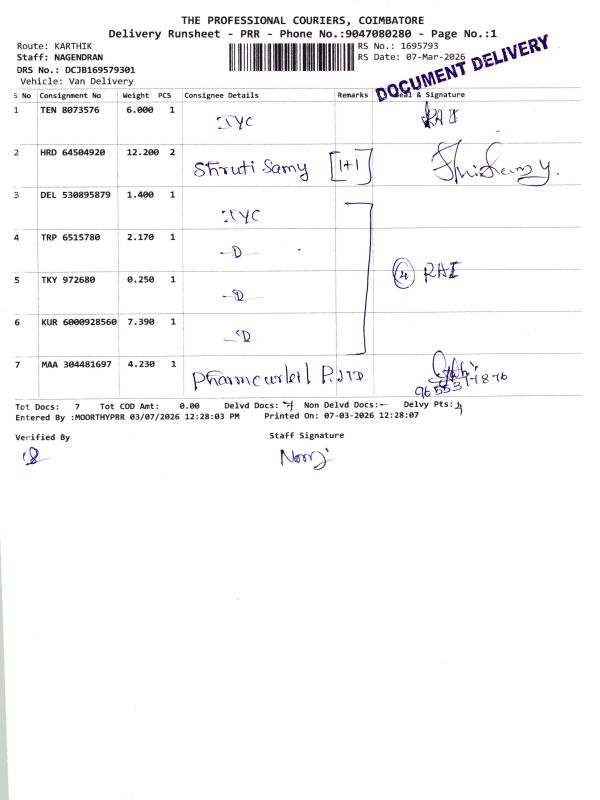 THE PROFESSIONAL COURIERS, COIMBATORE
Delivery Runsheet - PRR - Phone No.:9047080280 - Page No.:1
Route: KARTHIK
RS No.: 1695793
Staff: NAGENDRAN
RS Date: 07-Mar-2026
DRS No.: DCJB169579301
Vehicle: Van Delivery
DOCUMENT DELIVERY
S No Consignment No Weight PCS Consignee Details Remarks Seal & Signature
1 TEN 8073576 6.000 1 RAI
2 HRD 64504920 12.200 2 Shruti Samy [1+1]
3 DEL 530895879 1.400 1
4 TRP 6515780 2.170 1 -D-
5 TKY 972680 0.250 1 -D- 4 RAI
6 KUR 6000928560 7.390 1 -D-
7 MAA 304481697 4.230 1 P.LTD
Tot Docs: 7 Tot COD Amt: 0.00 Delvd Docs: 7 Non Delvd Docs:- Delvy Pts: 4
Entered By :MOORTHYPRR 03/07/2026 12:28:03 PM Printed On: 07-03-2026 12:28:07
Verified By Staff Signature